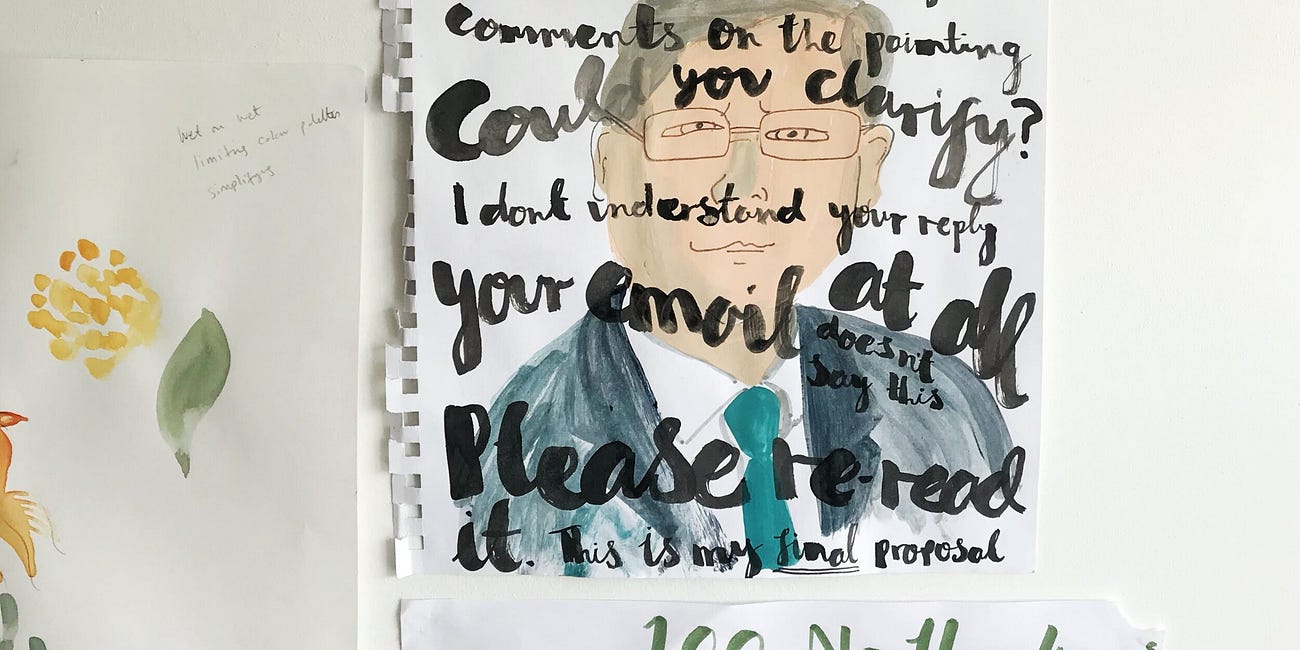 wet on wet
limiting colour palettes
simplifying
comments on the painting
Could you clarify?
I dont understand your reply
your email at all
doesn't
say this
Please re-read
it. This is my final proposal
100